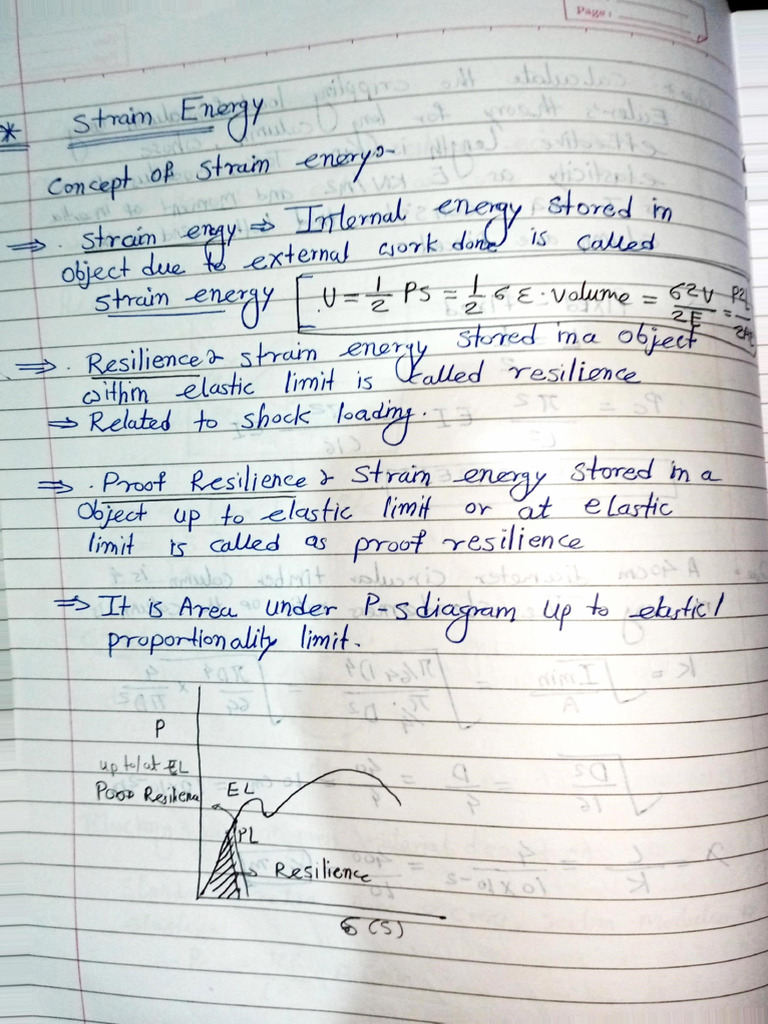 Page:
* Strain Energy
Concept of Strain enery:-
⇒ . Strain enrgy ⇒ Internal energy stored in
object due to external work done is called
strain energy [ U = 1/2 PS = 1/2 σ ε . volume = σ2V/2E = P2L
⇒ . Resilience : strain energy stored in a object
within elastic limit is called resilience
⇒ Related to shock loading.
⇒ . Proof Resilience : Strain energy stored in a
Object up to elastic limit or at elastic
limit is called as proof resilience
⇒ It is Area under P-s diagram up to elastic/
proportionality limit.
P
up to/at EL
EL
Poor Resilienc
PL
Resilience
σ (S)